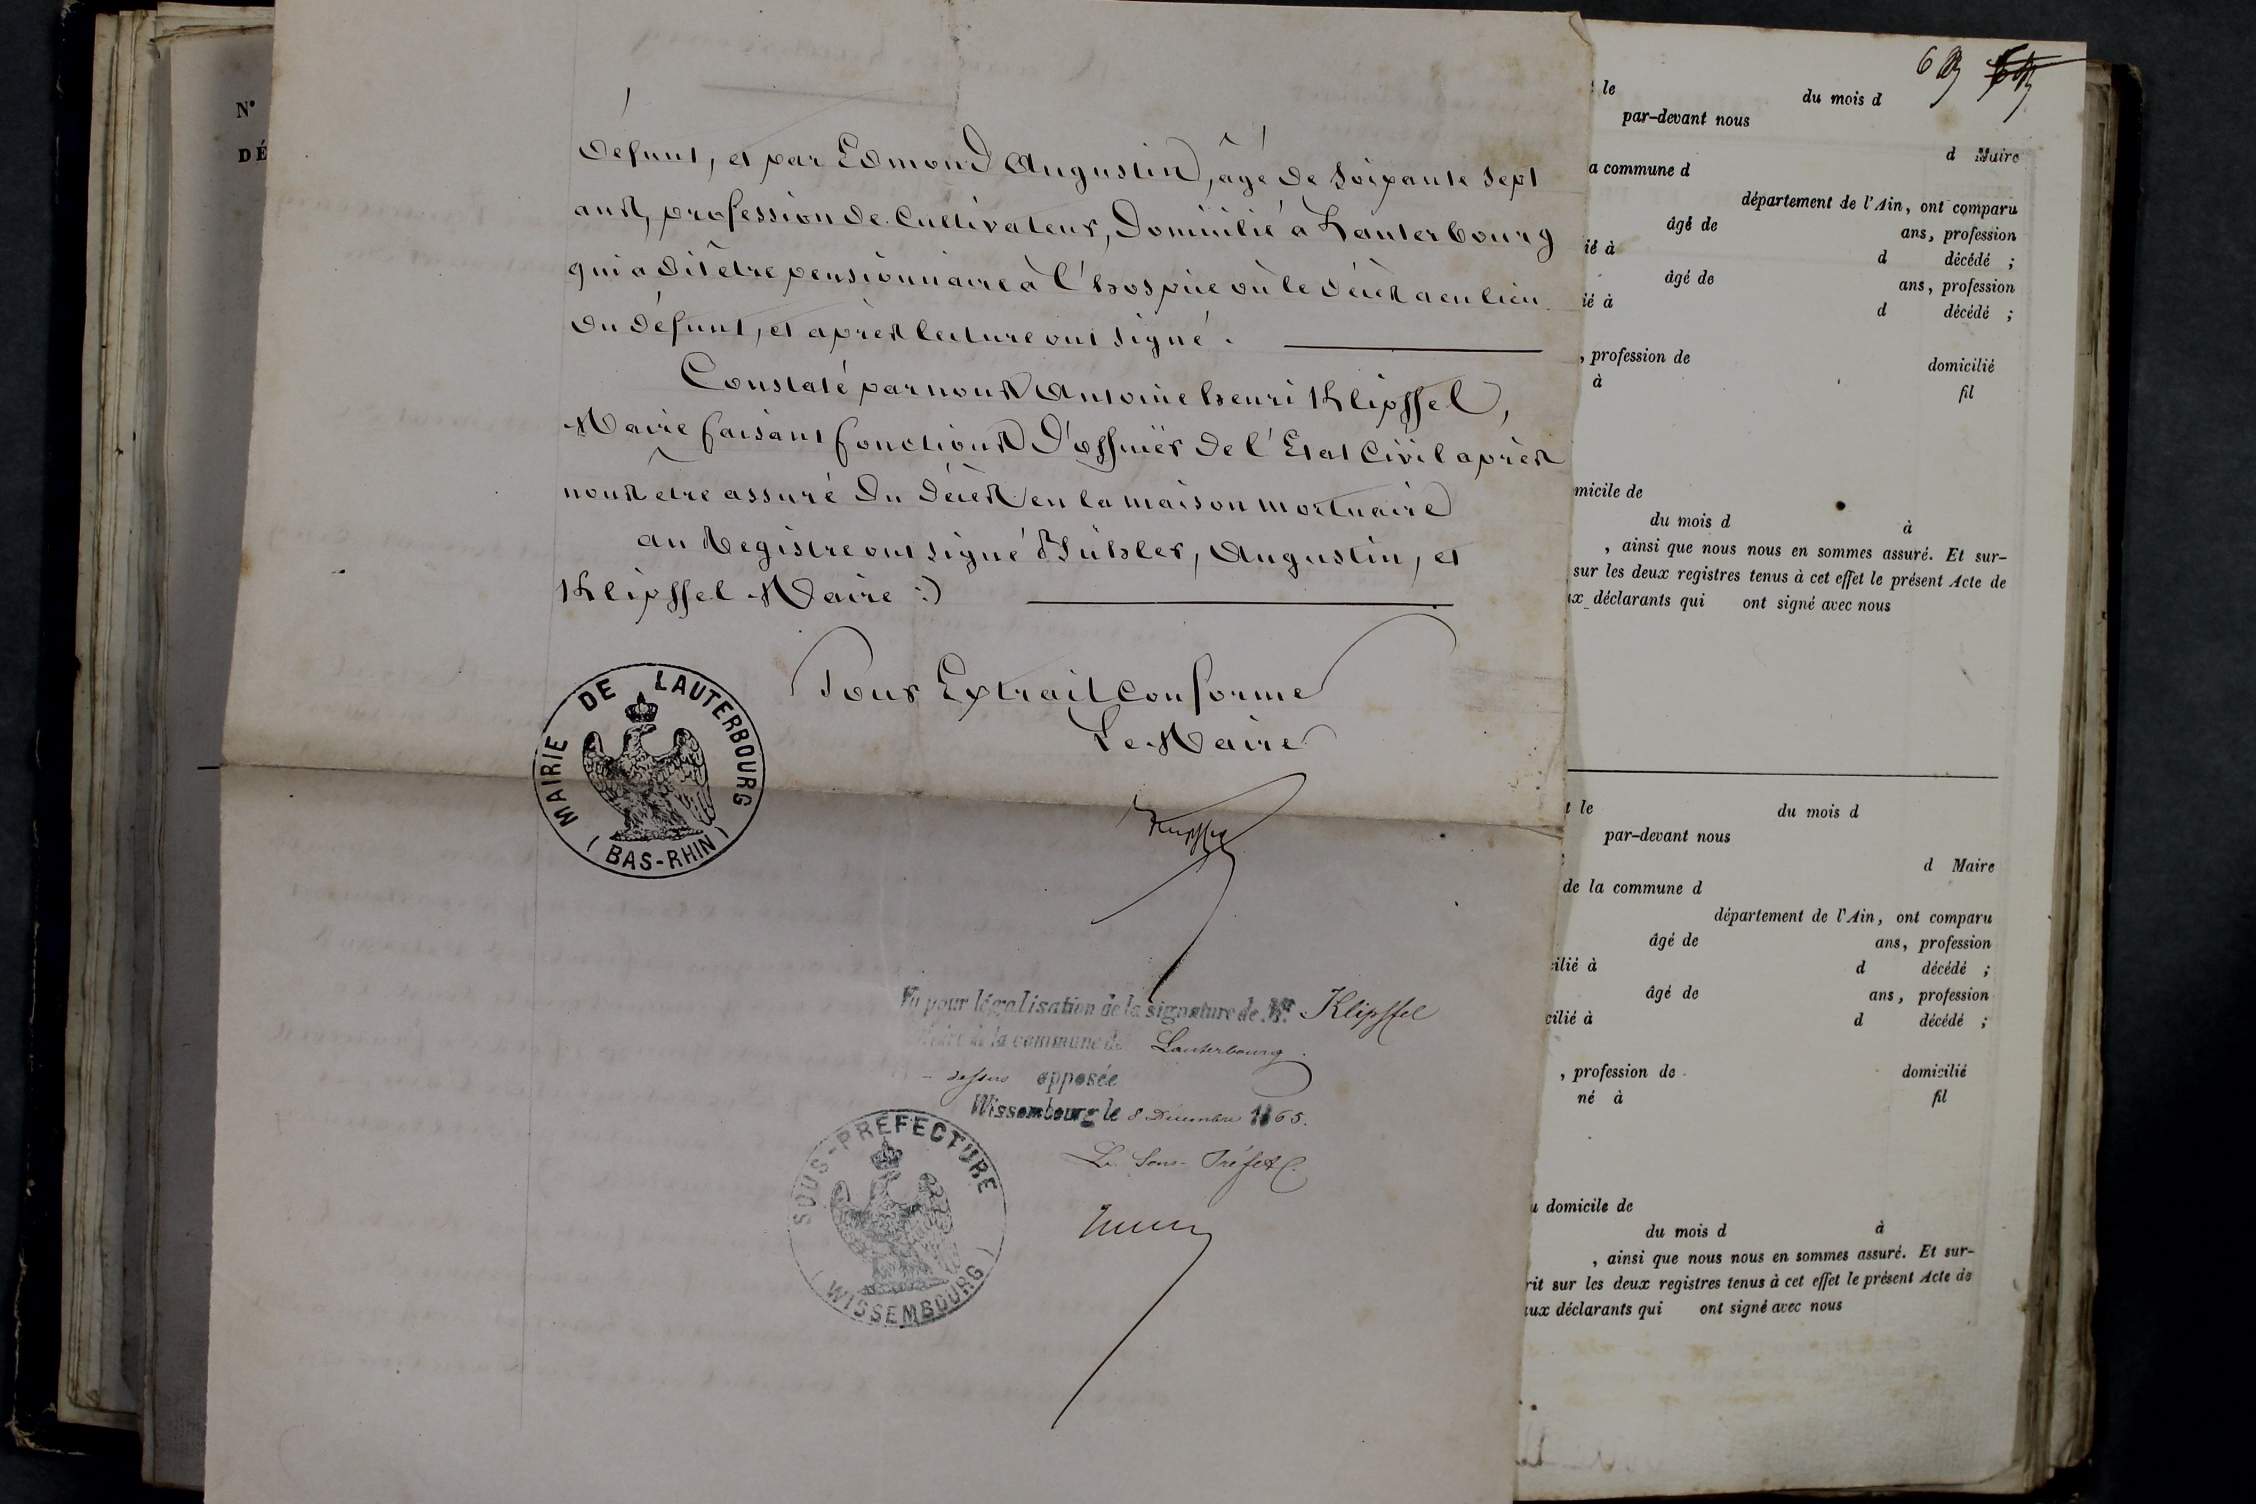 défunt, et par Edmond Augustin, âgé de soixante sept
ans, profession de Cultivateur, domicilié à Lauterbourg
qui a dit etre pensionnaire à l'hospice où le décès a eu lieu
du défunt, et après lecture ont signé.
Constaté par nous Antoine henri Klipffel,
Maire faisant fonctions d'officier de l'Etat Civil après
nous être assuré du décès en la maison mortuaire
au Registre ont signé Bühler, Augustin, et
Klipffel Maire :)
Pour Extrait conforme
Le Maire
Klipffel
MAIRIE DE LAUTERBOURG
(BAS-RHIN)
Vu pour légalisation de la signature de Mr. Klipffel
Maire de la commune de Lauterbourg.
- dessus apposée
Wissembourg le 8 Décembre 1865.
Le Sous-Préfet
SOUS-PRÉFECTURE
(WISSEMBOURG)
N°
DÉ
le du mois d
par-devant nous
d Maire
a commune d
département de l'Ain, ont comparu
âgé de ans, profession
ié à d décédé ;
âgé de ans, profession
ié à d décédé ;
, profession de domicilié
à fil
micile de
du mois d à
, ainsi que nous nous en sommes assuré. Et sur-
sur les deux registres tenus à cet effet le présent Acte de
ux déclarants qui ont signé avec nous
t le du mois d
par-devant nous
d Maire
de la commune d
département de l'Ain, ont comparu
âgé de ans, profession
cilié à d décédé ;
âgé de ans, profession
cilié à d décédé ;
, profession de domicilié
né à fil
u domicile de
du mois d à
, ainsi que nous nous en sommes assuré. Et sur-
rit sur les deux registres tenus à cet effet le présent Acte de
aux déclarants qui ont signé avec nous